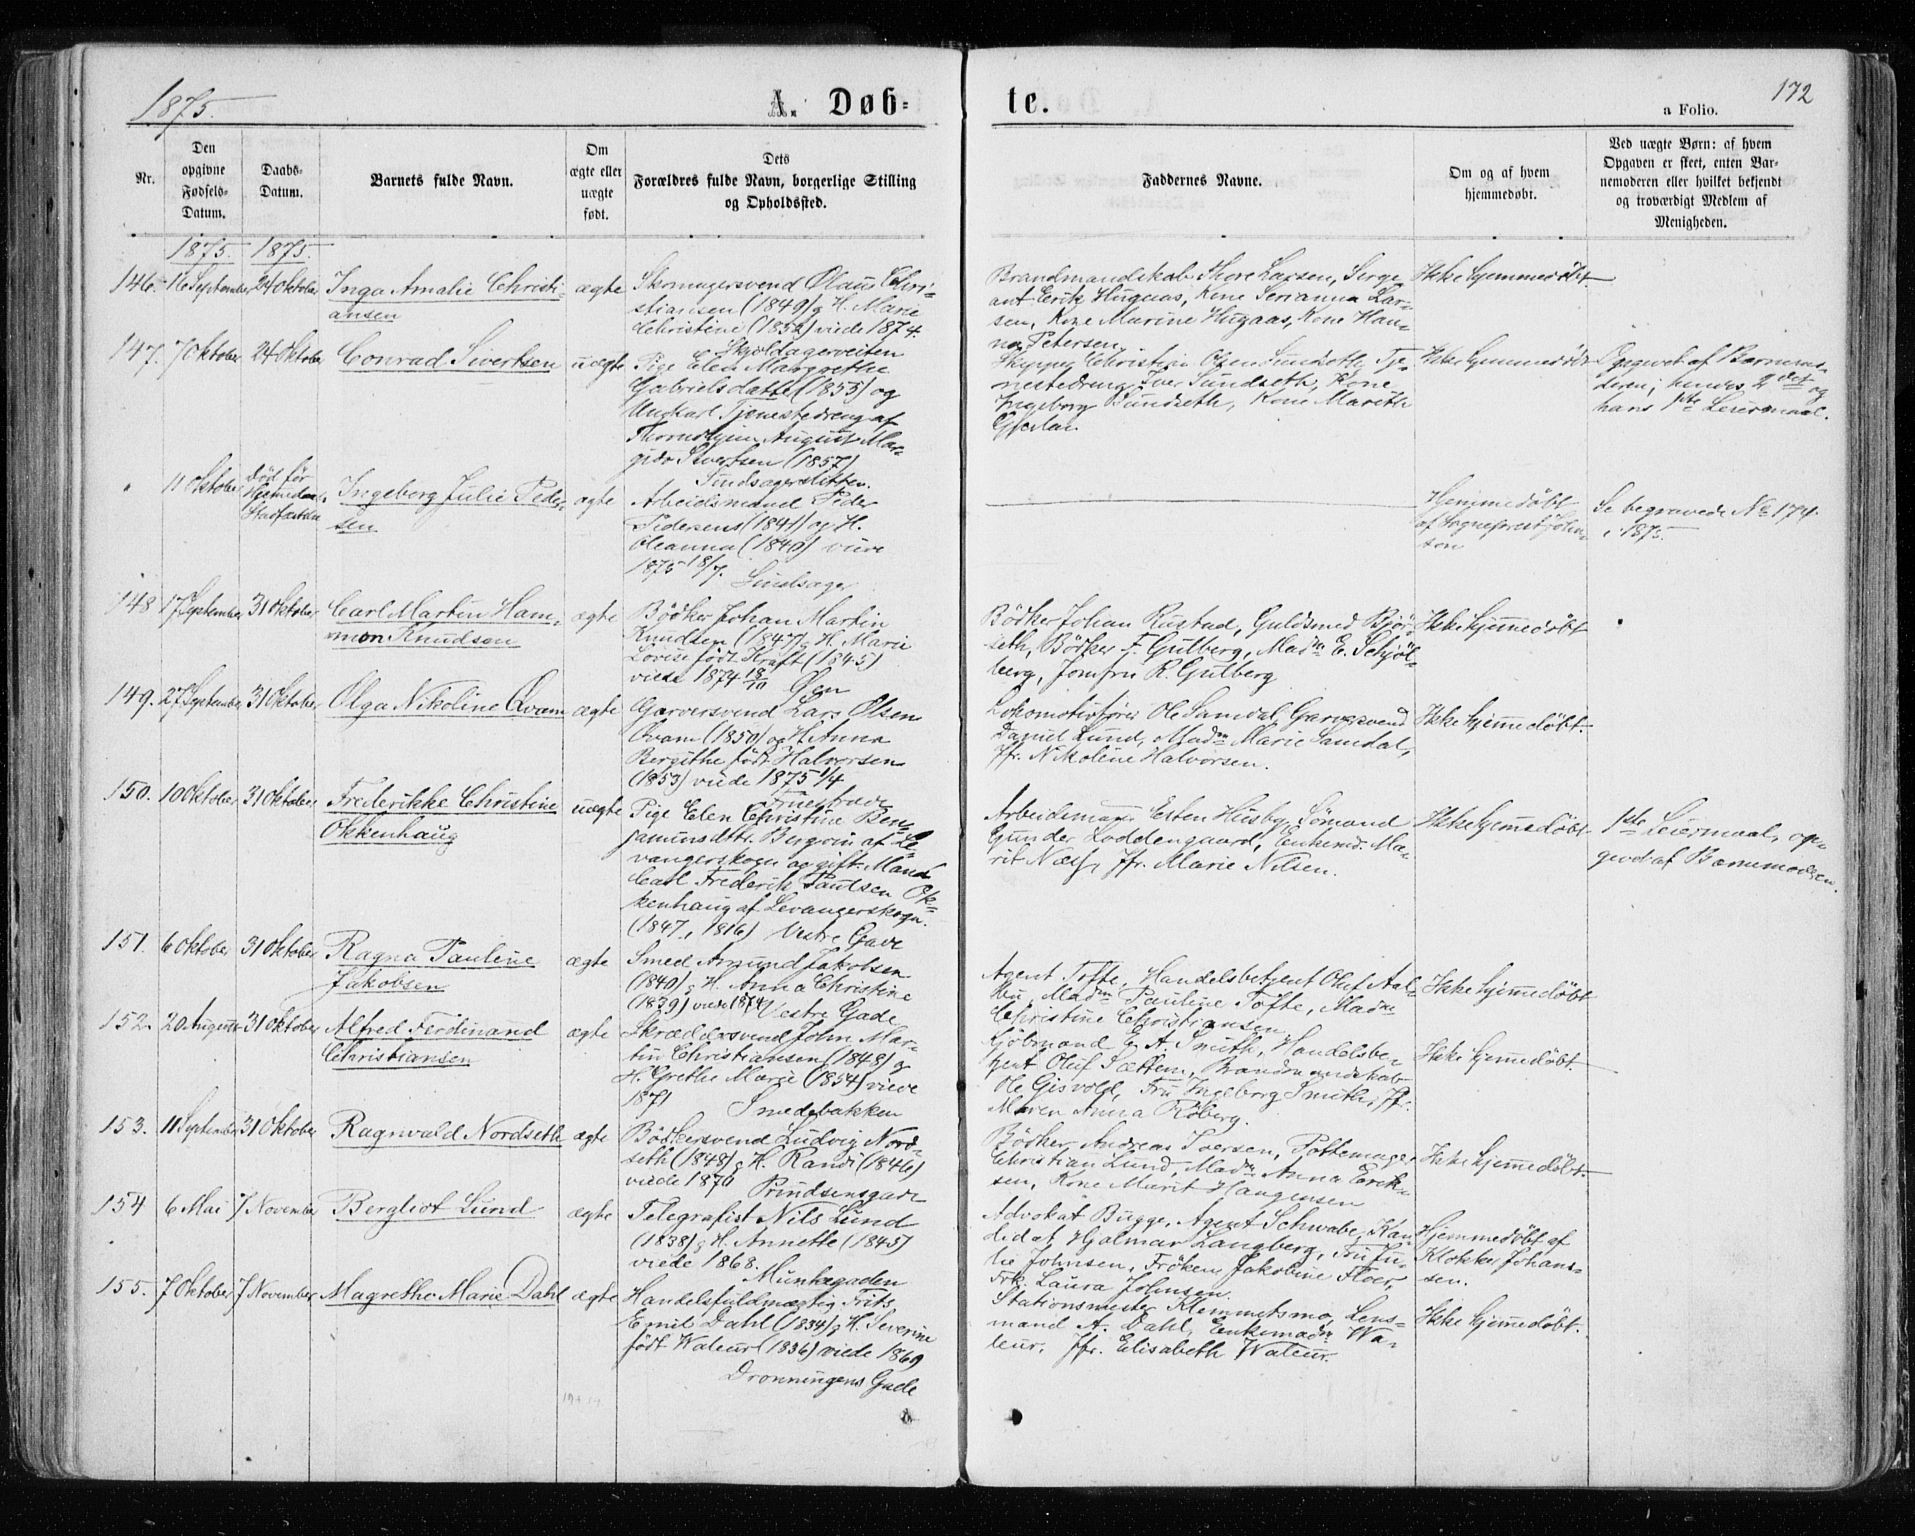 1875.
A. Døb=
te.
172
a Folio.
Nr.
Den
opgivne
Fødsels-
Datum.
Daabs-
Datum.
Barnets fulde Navn.
Om
ægte eller
uægte
født.
Dets
Forældres fulde Navn, borgerlige Stilling
og Opholdssted.
Faddernes Navne.
Om og af hvem
hjemmedøbt.
Ved uægte Børn: af hvem
Opgaven er skeet, enten Bar-
nemoderen eller hvilket bekjendt
og troværdigt Medlem af
Menigheden.
1875. 1875.
146. 16 September 24 Oktober Inga Amalie Christi-
ansen
ægte
Skomagersvend Olaus Chri-
stiansen (1849) g H. Marie
Christine (1852) viede 1874.
Skjoldagerveiten
Brandmandskab Thore Larsen, Serge-
ant Erik Hugaas, Kone Serianna Lar-
sen, Kone Marine Hugaas, Kone Han-
na Petersen.
Ikke hjemmedøbt.
147. 7 Oktober 24 Oktober Conrad Sivertsen
uægte
Pige Elen Margrethe
Gabrielsdatter (1853) og
Ungkarl Tjenestedreng af
Throndhjem August Mar-
gido Sivertsen (1857)
Sindsagerslitten.
Skipper Christian Olsen Sundseth, Tje-
nestedreng Iver Sundseth, Kone
Ingeborg Sundseth, Kone Marith
Ikke hjemmedøbt
Opgivet af Barnemo-
deren; hendes 2det og
hans 1ste Leiermaal.
" 11 Oktober død før
Ingeborg Julie Peder-
sen
ægte
Arbeidsmand Peder
Pedersens (1841) og H.
Oleanna (1840) viede
1875 18/7. Sindsager
Hjemmedøbt
af Sognepræst John-
son
Se begravede No 174.
i 1875.
148 17 September 31 Oktober Carl Martin Ham-
mon Knudsen
ægte
Bödker Johan Martin
Knudsen (1847) g H. Marie
Lovise født Kraft (1845)
viede 1874 18/10 Øen
Bödker Johan Rustad, Guldsmed Bjør-
seth, Bödker F. Gulberg, Madm E. Schjöl-
berg, Jomfru R. Gulberg
Ikke hjemmedøbt
149. 27 September 31 Oktober Olga Nikoline Qvam
ægte
Garversvend Lars Olsen
Qvam (1850) og H. Anna
Bergithe født Halvorsen
(1853) viede 1875 1/4
Lokomotivfører Ole Samdal, Garversvend
Daniel Lund, Madm Marie Samdal,
Jfr. Nikoline Halvorsen.
Ikke hjemmedøbt.
150. 10 Oktober 31 Oktober Frederikke Christine
Okkenhaug
uægte
Pige Elen Christine Ben-
jaminsdtr. Bugvin af Le-
vangerskogn og gift Mand
Carl Frederik Paulsen Ok-
kenhaug af Levangerskogn.
(1847, 1816) Vestre Gade
Arbeidsmand Esten Husby, Sömand
Gunder Loddengaard, Enkemd. Ma-
rit Næss, Jfr. Marie Nilsen.
Ikke hjemmedøbt.
1ste Leiermaal, op-
givet af Barnemoderen.
151. 6 Oktober 31 Oktober Ragna Pauline
Jakobsen
ægte
Smed Amund Jakobsen
(1840) g H. Anna Christine
(1839) viede 1874 Vestre Gade
Agent Tofte, Handelsbetjent Oluf Aal-
bu, Madm Pauline Tofte, Madm
Christine Christiansen
Ikke hjemmedøbt
152. 20 August 31 Oktober Alfred Ferdinand
Christiansen
ægte
Skræddersvend John Mar-
tin Christiansen (1848) g
H. Grethe Marie (1854) viede
1871 Smedbakken
Kjöbmand E. A. Smith, Handelsbe-
tjent Oluf Sættem, Brandmandskab
Ole Gisvold, Fru Ingeborg Smith, Jfr.
Maren Anna Röberg.
Ikke hjemmedøbt.
153. 11 September 31 Oktober Ragnvald Nordseth
ægte
Bödkersvend Ludvig Nord-
seth (1848) g H. Randi (1846)
viede 1870 Prindsensgade
Bödker Andreas Iversen, Pottemager
Christian Lund, Madm Anna Erik-
sen, Kone Marit Haugensen
Ikke hjemmedøbt.
154 6 Mai 7 November Bergliot Lund
ægte
Telegrafist Nils Lund
(1838) g H. Annette (1845)
viede 1868.
Munkegaden
Advokat Bugge, Agent Schwabe, Kan-
didat Hjalmar Langberg, Fru Ju-
lie Johnsen, Fröken Jakobine Floer,
Frk. Laura Johnsen.
Hjemmedøbt af
Klokker Johans-
sen.
155. 7 Oktober 7 November Magrethe Marie Dahl
ægte
Handelsfuldmægtig Frits
Emil Dahl (1834) g H. Severine
født Wateur (1836) viede 1869
Dronningens Gade
Stationsmester Klemmetsmo, Lens-
mand A. Dahl, Enkemadm Wa-
teur, Jfr. Elisabeth Wateur.
Ikke hjemmedøbt.